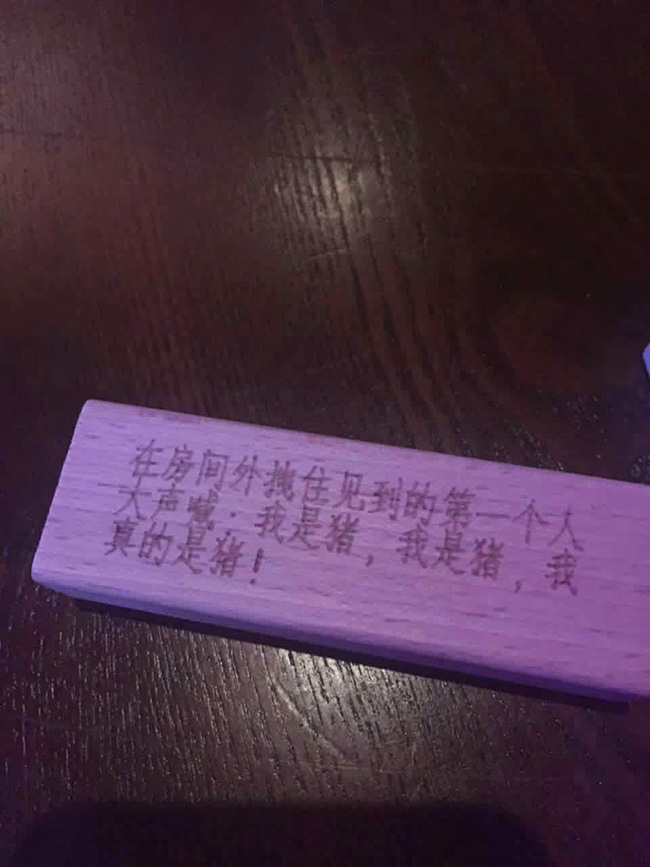 在房间外拽住见到的第一个人
大声喊：我是猪，我是猪，我
真的是猪！